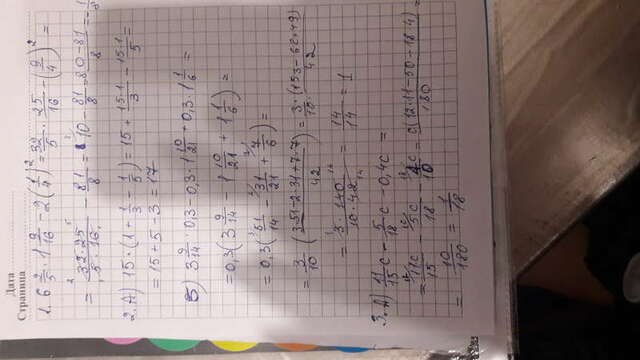 Дата
Страница
1. 6 2/5 · 1 9/16 - 2(1/4)² = 32/5 · 25/16 - (9/4)² =
= 32·25/5·16 - 81/8 = 10 - 81/8 = 80-81/8 = -1/8
2. А) 15·(1 + 1/3 - 1/5) = 15 + 15·1/3 - 15·1/5 =
= 15 + 5 - 3 = 17
Б) 3 9/14 · 0,3 - 0,3 · 1 10/21 + 0,3 · 1 1/6 =
= 0,3(3 9/14 - 1 10/21 + 1 1/6) =
= 0,3(51/14 - 31/21 + 7/6) =
= 3/10 (3·51-2·31+7·7/42) = 3·(153-62+49)/10·42
= 3·140/10·42 = 14/14 = 1
3. А) 11/15 c - 5/18 c - 0,4c =
= 11c/15 - 5c/18 - 4c/10 = c(12·11-50-18·4)/180 =
= 10/180 = 1/18